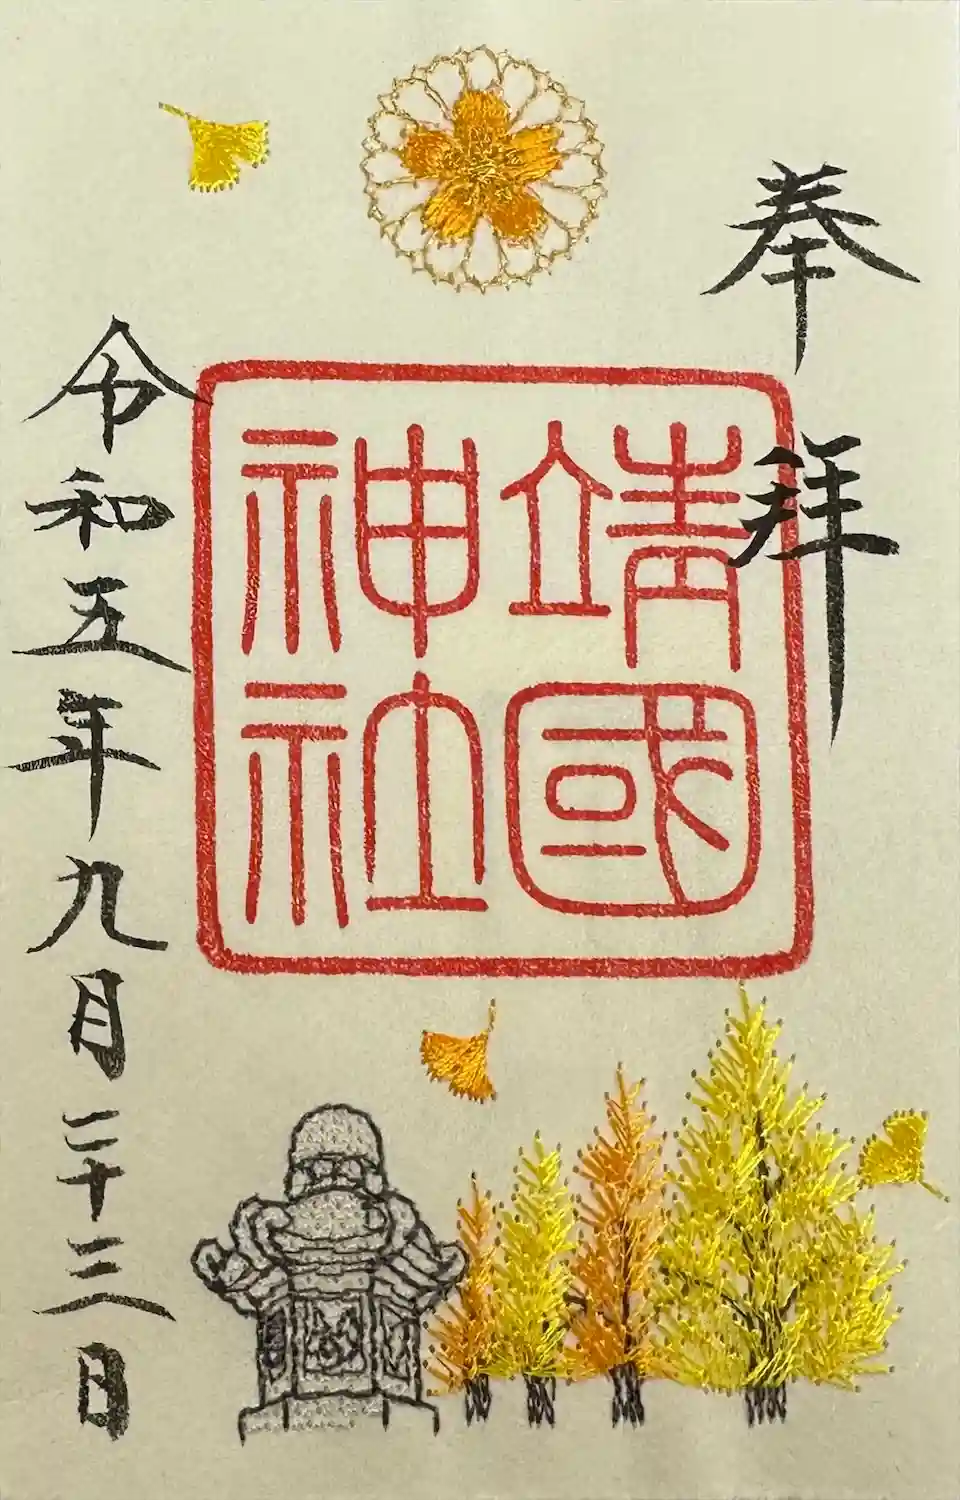 奉拝
靖國
神社
令和五年九月二十三日